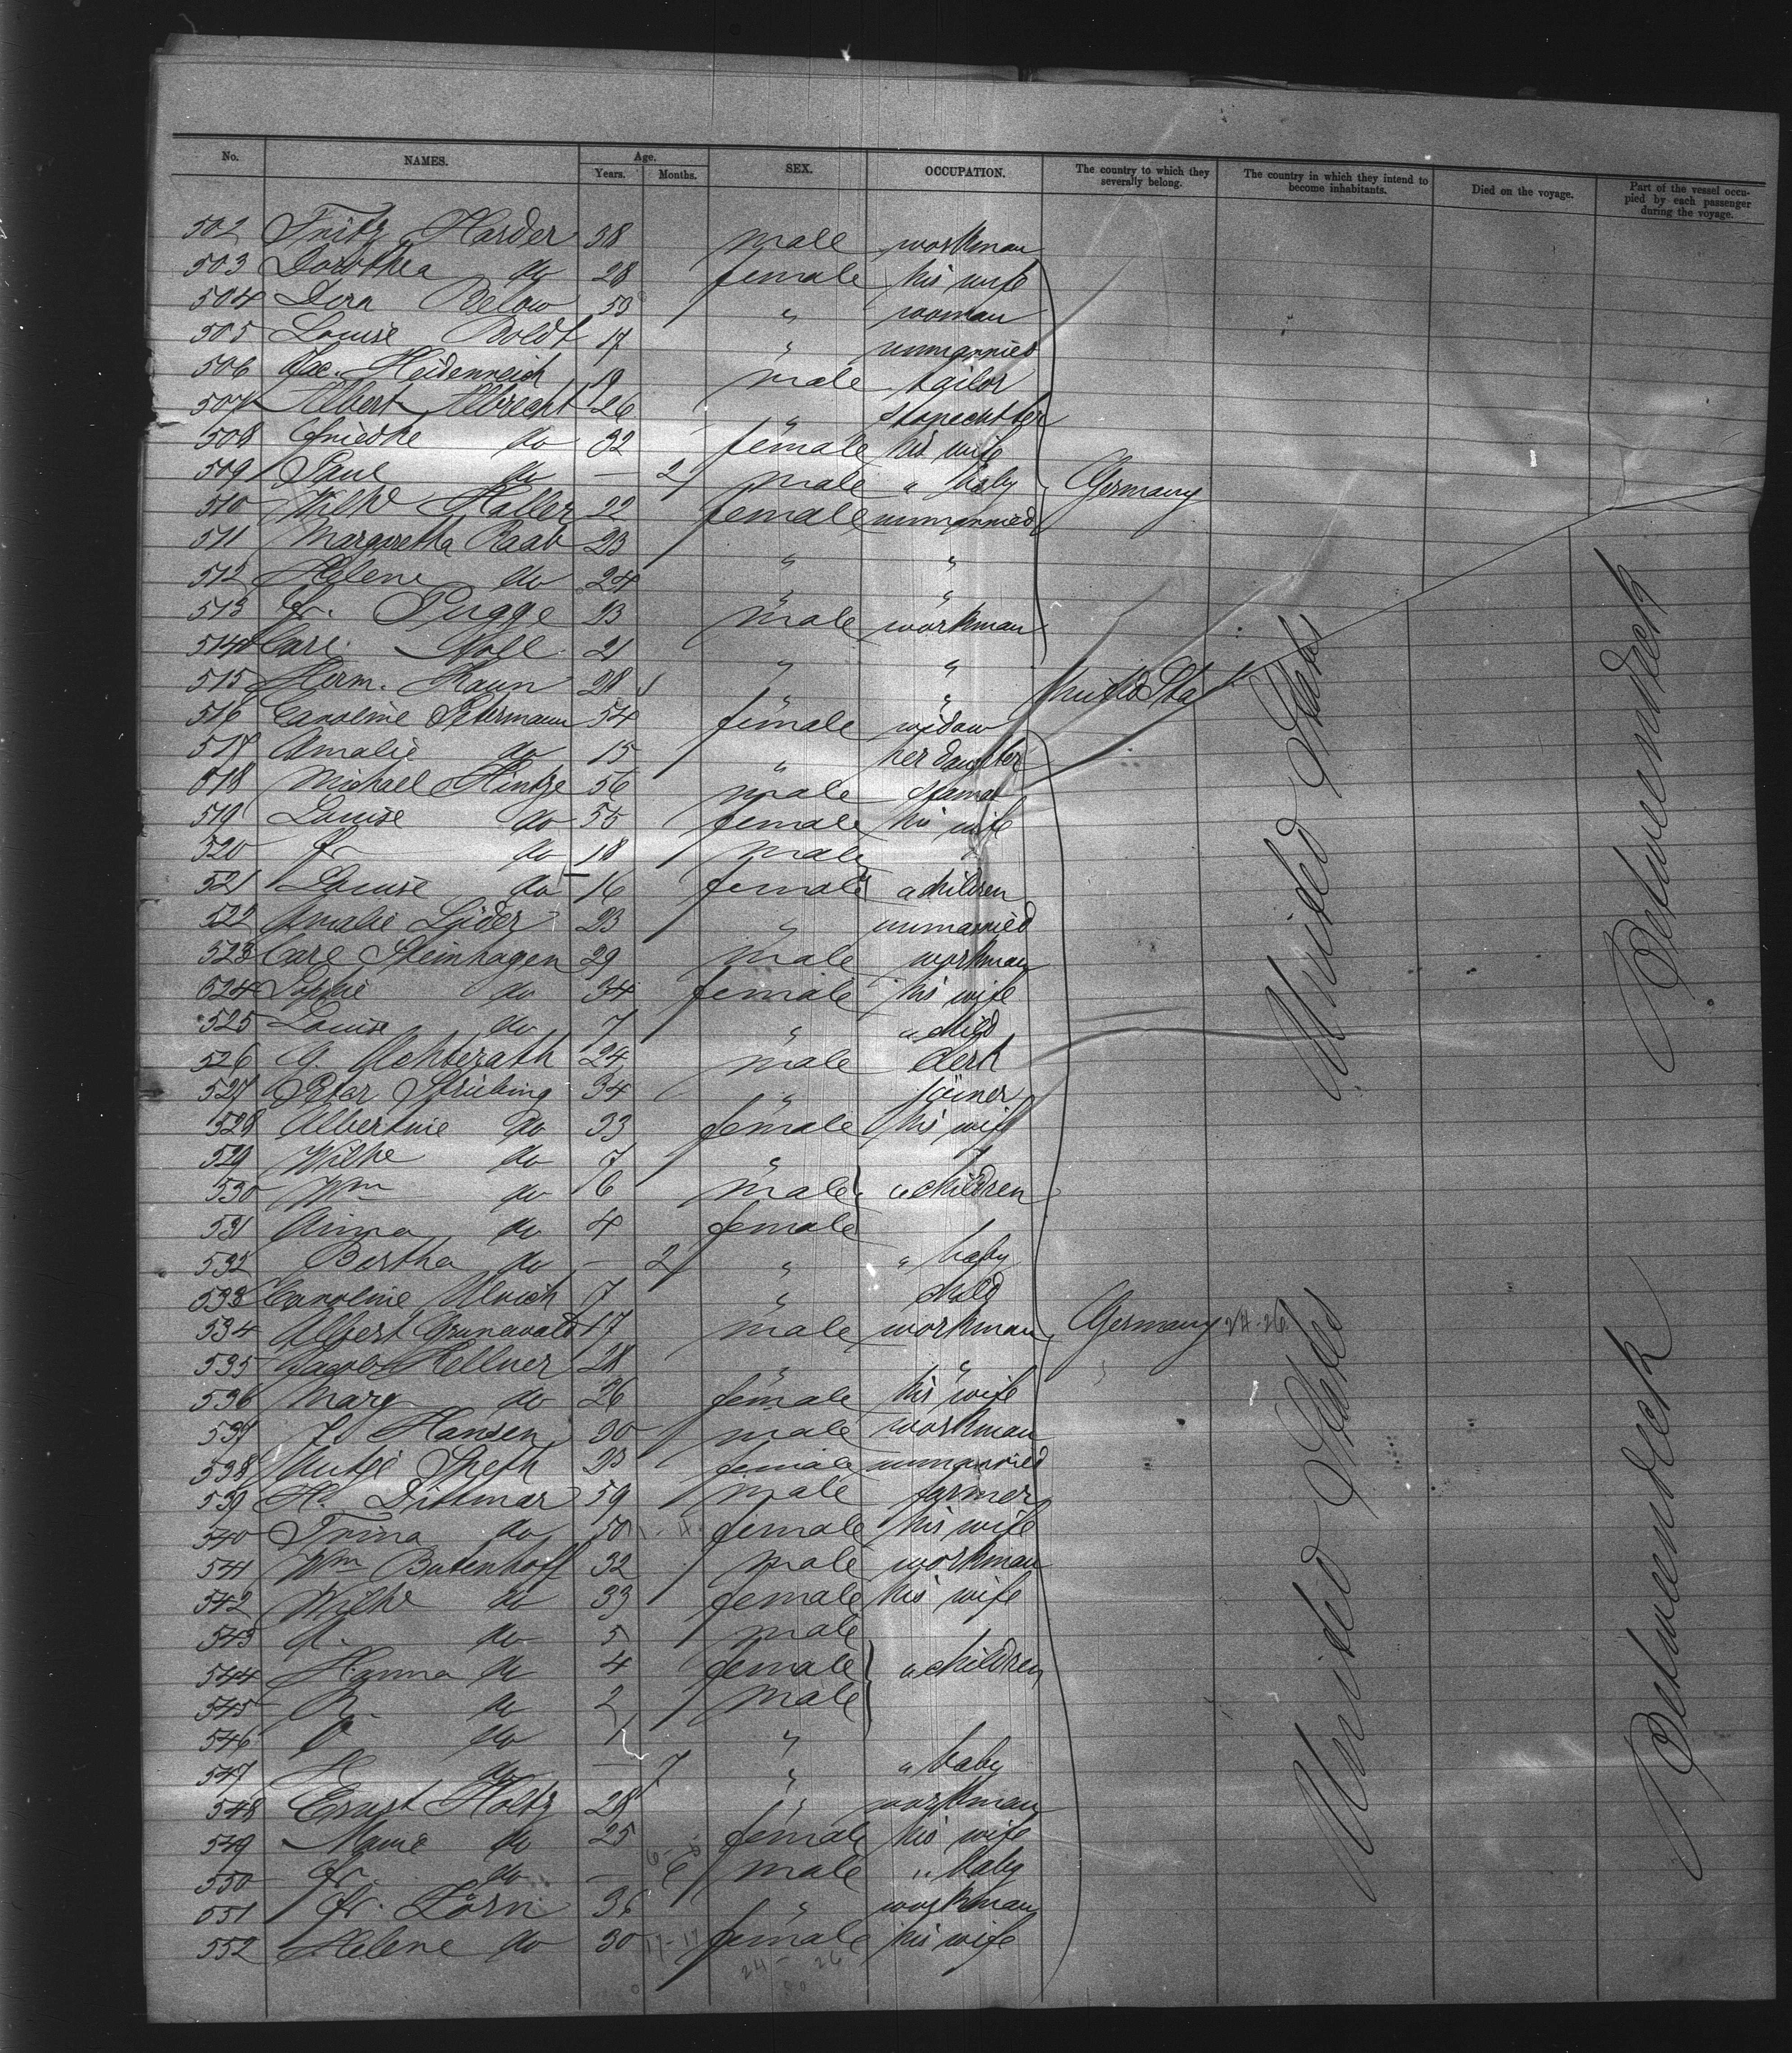 No. NAMES. Age. Years. Months. SEX. OCCUPATION. The country to which they severally belong. The country in which they intend to become inhabitants. Died on the voyage. Part of the vessel occupied by each passenger during the voyage.
502 Fritz Harder 38 male workman
503 Dorothea do 28 female his wife
504 Dora Below 53 " woman
505 Louise Boldt 17 " unmarried
506 Jac. Heidenreich 19 male tailor
507 Albert Albrecht 26 "
508 Friedke do 32 female his wife
509 Paul do — 2 male " baby Germany
510 Wilhe Haller 22 female unmarried
511 Margaretha Raab 23 " "
512 Helene do 24 " "
513 Fr. Pugge 23 male workman
514 Carl Noll 21 " "
515 Herm. Kaun 28 " " United Sta
516 Caroline Petermann 54 female widow
517 Amalie do 15 " her daughter
518 Michael Hintze 56 male
519 Louise do 55 female his wife
520 Fr do 18 male
521 Louise do 16 female " children
522 Amalie Lüder 23 " unmarried
523 Carl Steinhagen 29 male workman
524 Sophie do 34 female his wife
525 Louise do 7 " " child
526 G. Achterath 24 male clerk
527 Peter Strübing 34 " joiner
528 Albertine do 33 female his wife
529 Wilhe do 7 "
530 Wm do 6 male " children
531 Anna do 4 female
532 Bertha do — 2 " " baby
533 Caroline Ulrich 7 " child
534 Albert Grunawald 17 male workman Germany 24-26
535 Jacob Kellner 28 " "
536 Marg do 26 female his wife
537 J. Hansen 30 male workman
538 Antje Speth 23 female unmarried
539 H. Dittmar 59 male farmer
540 Trina do 50 female his wife
541 Wm Butenhoff 32 male workman
542 Wilhe do 33 female his wife
543 A. do 5 male
544 Hanna do 4 female " children
545 R. do 2 male
546 do 1 "
547 H do — 7 " " baby
548 Ernst Holtz 28 " workman
549 Marie do 25 female his wife
550 Fr. do — 6 male " baby
551 Fr. Lörn 36 " workman
552 Helene do 30 17-17 female his wife
24 - 26
United States
Betweendeck
United States
Betweendeck